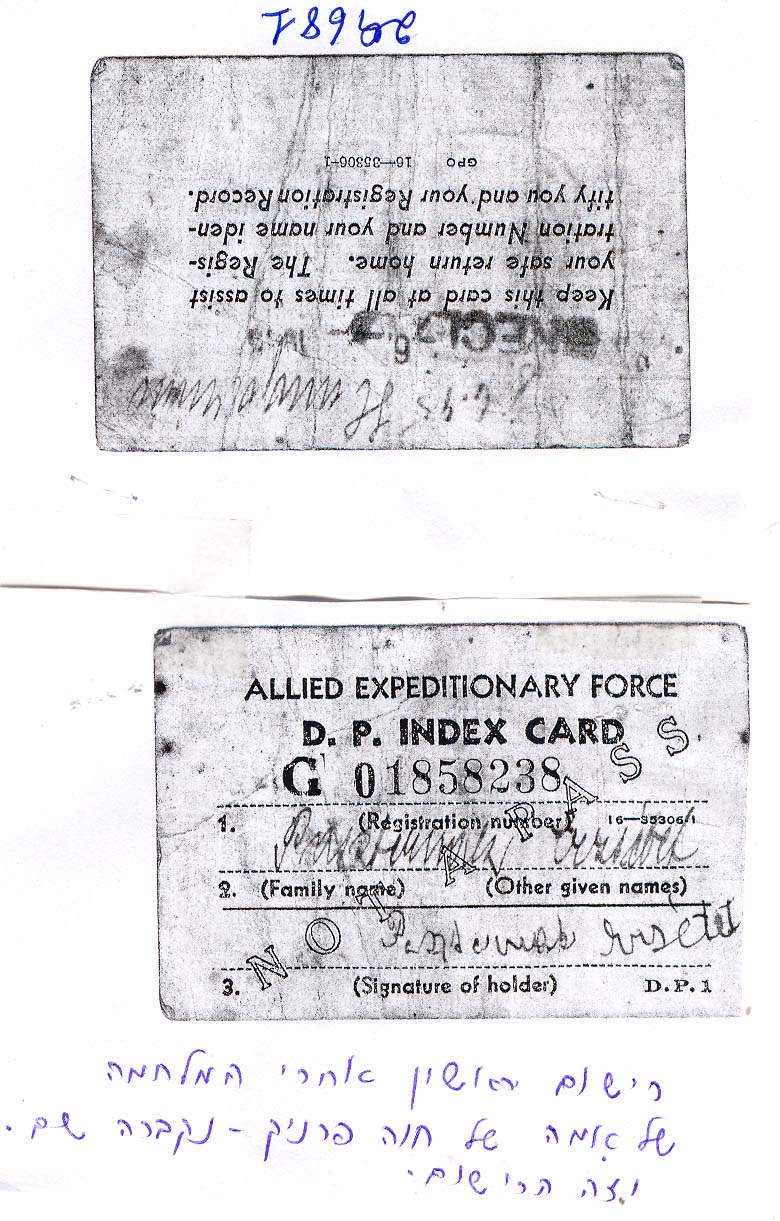 Keep this card at all times to assist
your safe return home. The Regis-
tration Number and your name iden-
tify you and your Registration Record.
GPO 16—35306-1
ALLIED EXPEDITIONARY FORCE
D. P. INDEX CARD
G 01858238
1. (Registration number) 16—35306-1
2. (Family name) (Other given names)
Pasternak
3. (Signature of holder) D.P.1
NOT A PASS
רישום ראשון אחרי המלחמה
של אמה של חנה פרניק - נקברה שם.
וזה הרישום.